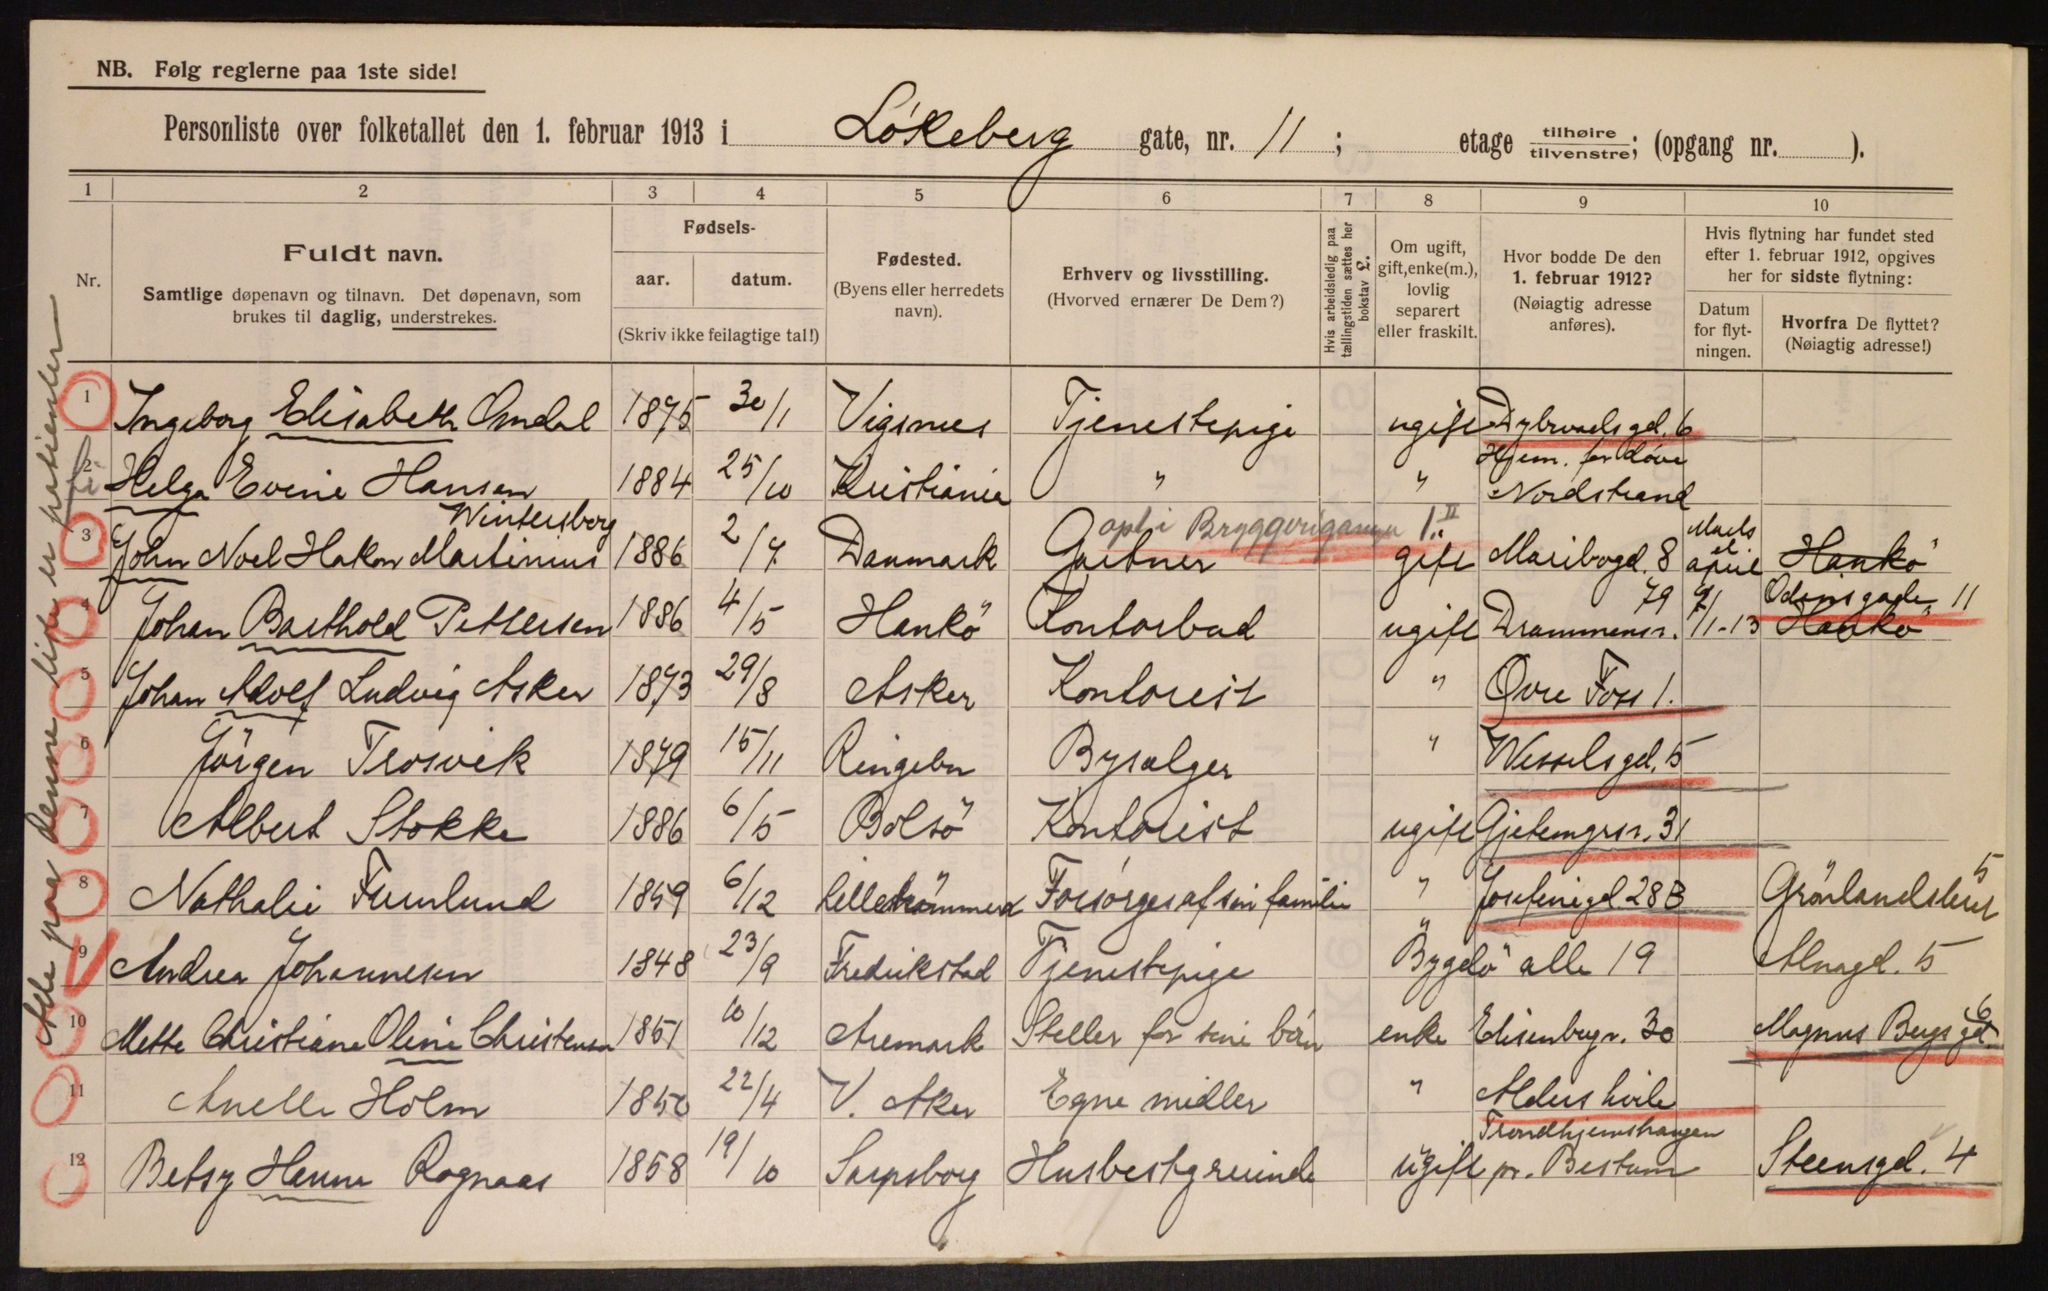 NB. Følg reglerne paa 1ste side!
Personliste over folketallet den 1. februar 1913 i Lökeberg gate, nr. 11 ; etage tilhøire tilvenstre; (opgang nr. ).
1 2 3 4 5 6 7 8 9 10
Nr.
Fuldt navn.
Samtlige døpenavn og tilnavn. Det døpenavn, som
brukes til daglig, understrekes.
Fødsels-
aar. datum.
(Skriv ikke feilagtige tal!)
Fødested.
(Byens eller herredets
navn).
Erhverv og livsstilling.
(Hvorved ernærer De Dem?)
Hvis arbeidsledig paa
tællingstiden sættes her
bokstav L.
Om ugift,
gift, enke(m.),
lovlig
separert
eller fraskilt.
Hvor bodde De den
1. februar 1912?
(Nøiagtig adresse
anføres).
Hvis flytning har fundet sted
efter 1. februar 1912, opgives
her for sidste flytning:
Datum
for flyt-
ningen.
Hvorfra De flyttet?
(Nøiagtig adresse!)
Alle paa denne liste er patienter
1 Ingeborg Elisabeth Omdal 1875 30/1 Vigsnes Tjenestepige ugift Dybwadsgd. 6
2 Helga Evine Hansen 1884 25/10 Kristiania " " Hjem. for döve
Nordstrand
Wintersborg
opt i Bryggerigangen 1.II
3 John Noel Hakon Martinius 1886 2/7 Danmark Gartner gift Maribogd. 8 Marts el april Hankö
4 Johan Barthold Pettersen 1886 4/5 Hankö Kontorbud ugift Drammensv. 79 9/1-13 Odinsgade 11
Hankö
5 Johan Adolf Ludvig Asker 1873 29/8 Asker Kontorist " Övre Foss 1.
6 Jörgen Trosvik 1879 15/11 Ringebu Bysælger " Wesselsgd. 5
7 Albert Stokke 1886 6/5 Bolsö Kontorist ugift Gjetemyrsv. 31
8 Nathalie 1859 6/12 Forsörges af sin familie " Josefinegd 28B Grönlandsleret 5
9 Andrea Johannesen 1848 23/9 Fredrikstad Tjenestepige " Bygdö alle 19 Almagd. 5
10 Mette Christiane Oline Christensen 1851 10/12 Aremark Steller for sine börn enke Eilsenbergv. 30 Magnus Bergs gd. 6
11 Anette Holm 1850 22/4 V. Aker Egne midler " Alders hvile
Trondhjemshaugen
12 Betsy Hanna Rognaas 1858 19/10 Sarpsborg Husbestyrerinde ugift pr. Bestum Steensgd. 4